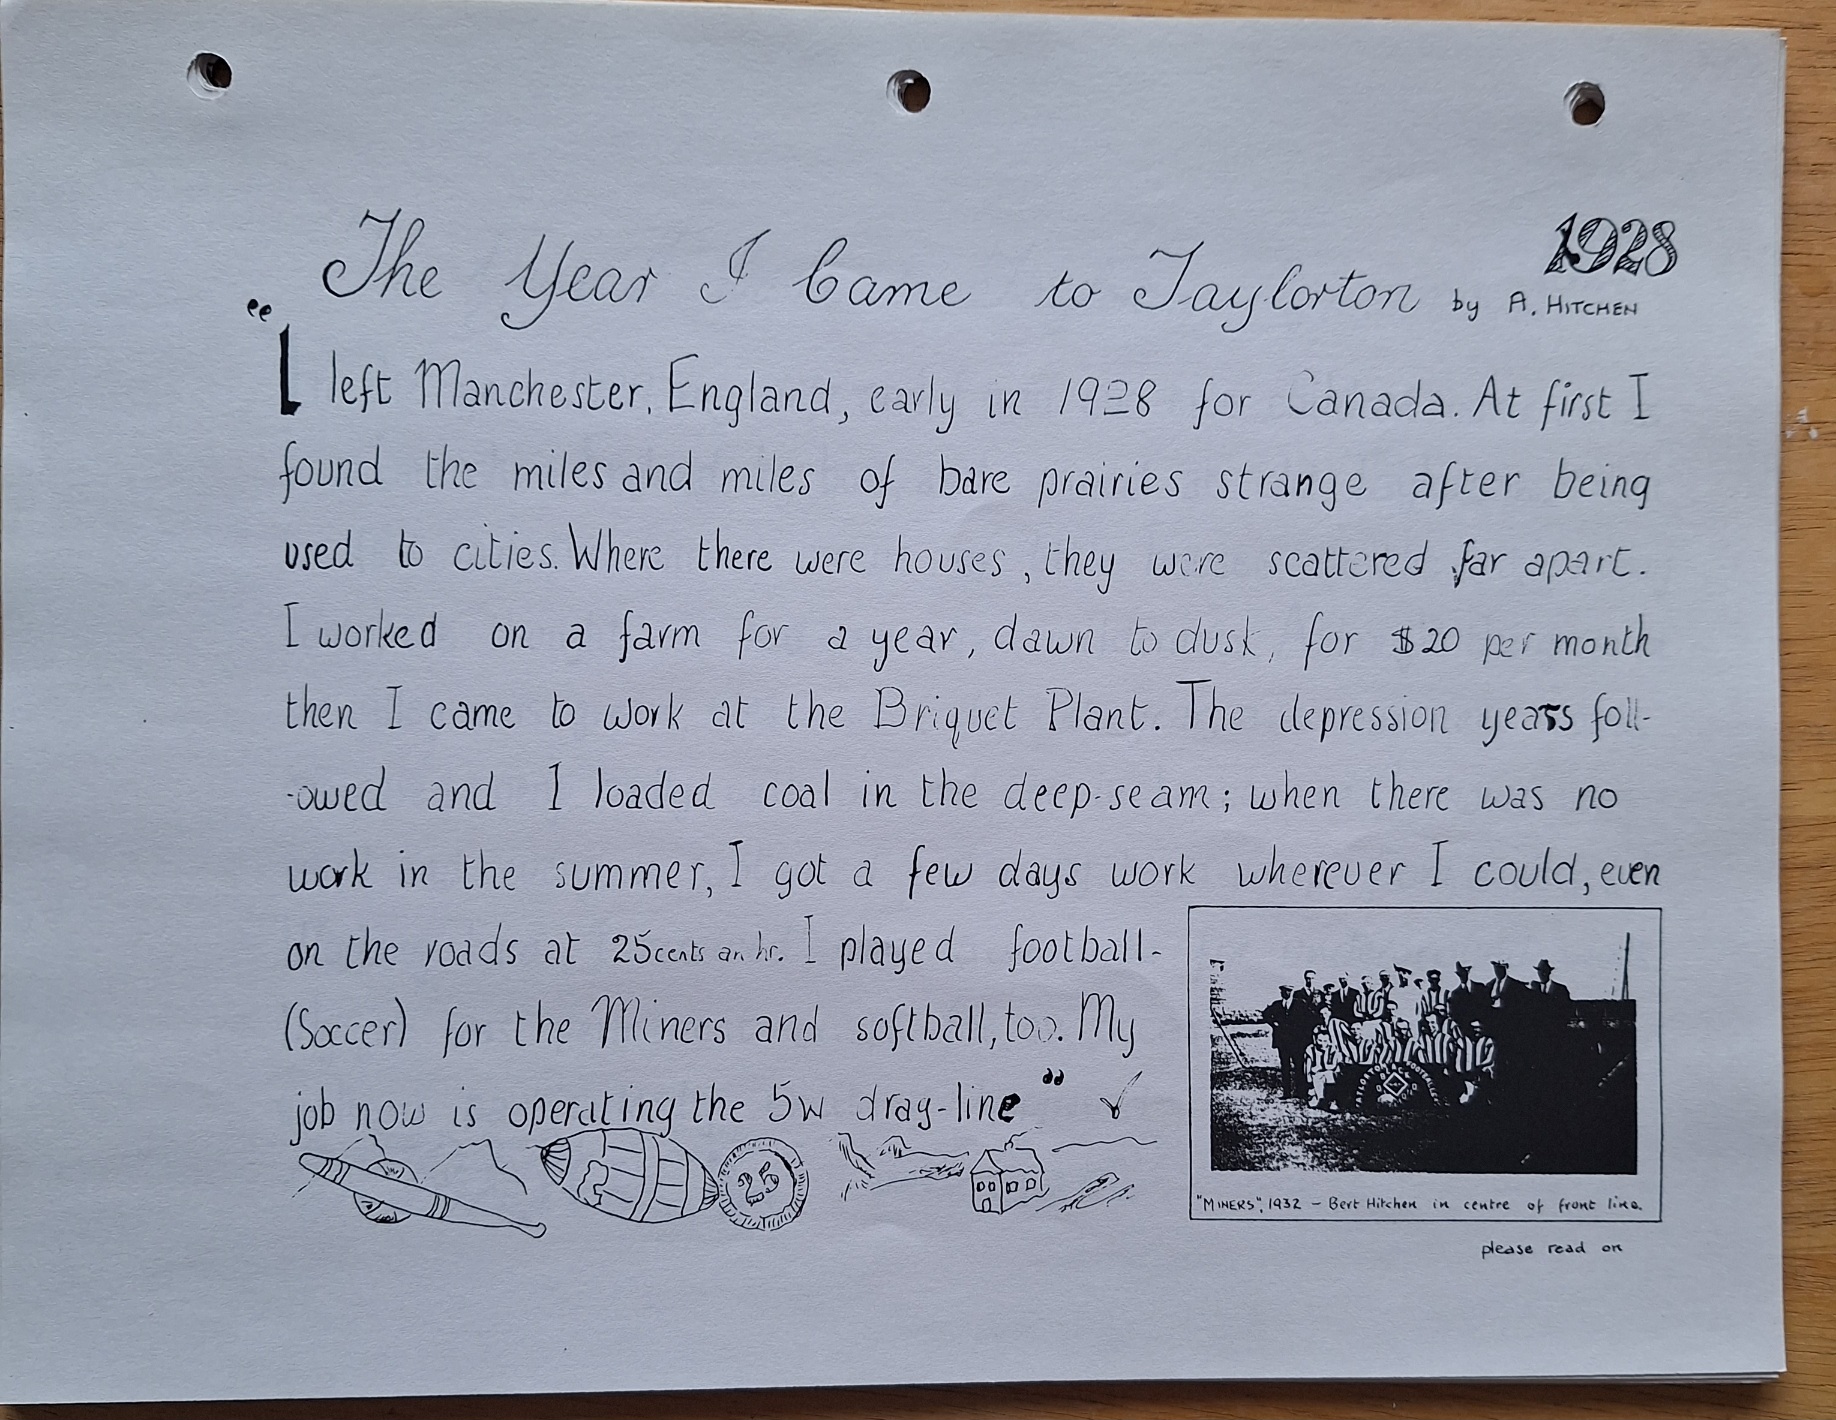 The Year I Came to Taylorton
1928
by A. HITCHEN
“I left Manchester, England, early in 1928 for Canada. At first I
found the miles and miles of bare prairies strange after being
used to cities. Where there were houses, they were scattered far apart.
I worked on a farm for a year, dawn to dusk, for $20 per month
then I came to work at the Briquet Plant. The depression years foll-
-owed and I loaded coal in the deep-seam; when there was no
work in the summer, I got a few days work wherever I could, even
on the roads at 25cents an hr. I played football-
(Soccer) for the Miners and softball, too. My
job now is operating the 5w drag-line”
25
"MINERS", 1932 - Bert Hitchen in centre of front line.
please read on